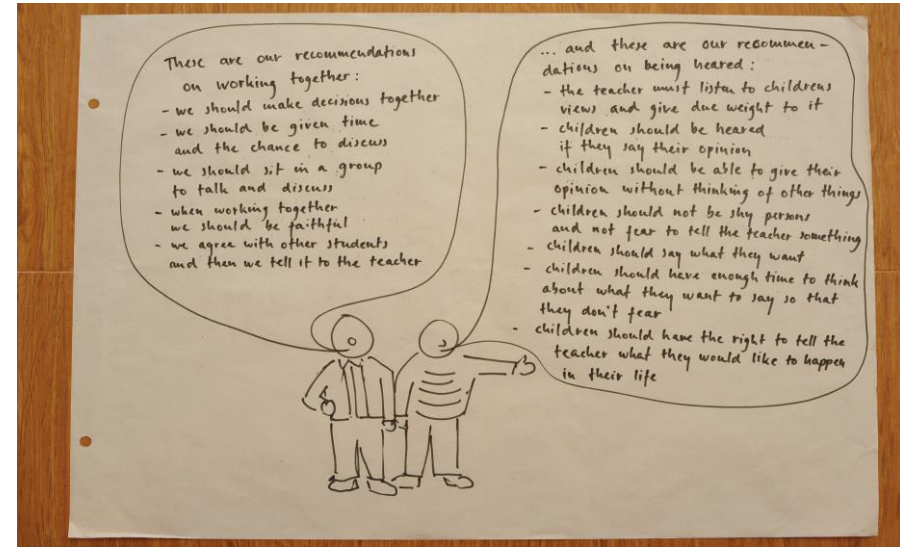 These are our recommendations
on working together:
- we should make decisions together
- we should be given time
and the chance to discuss
- we should sit in a group
to talk and discuss
- when working together
we should be faithful
- we agree with other students
and then we tell it to the teacher
... and these are our recommen-
dations on being heared:
- the teacher must listen to childrens
views and give due weight to it
- children should be heared
if they say their opinion
- children should be able to give their
opinion without thinking of other things
- children should not be shy persons
and not fear to tell the teacher something
- children should say what they want
- children should have enough time to think
about what they want to say so that
they don't fear
- children should have the right to tell the
teacher what they would like to happen
in their life